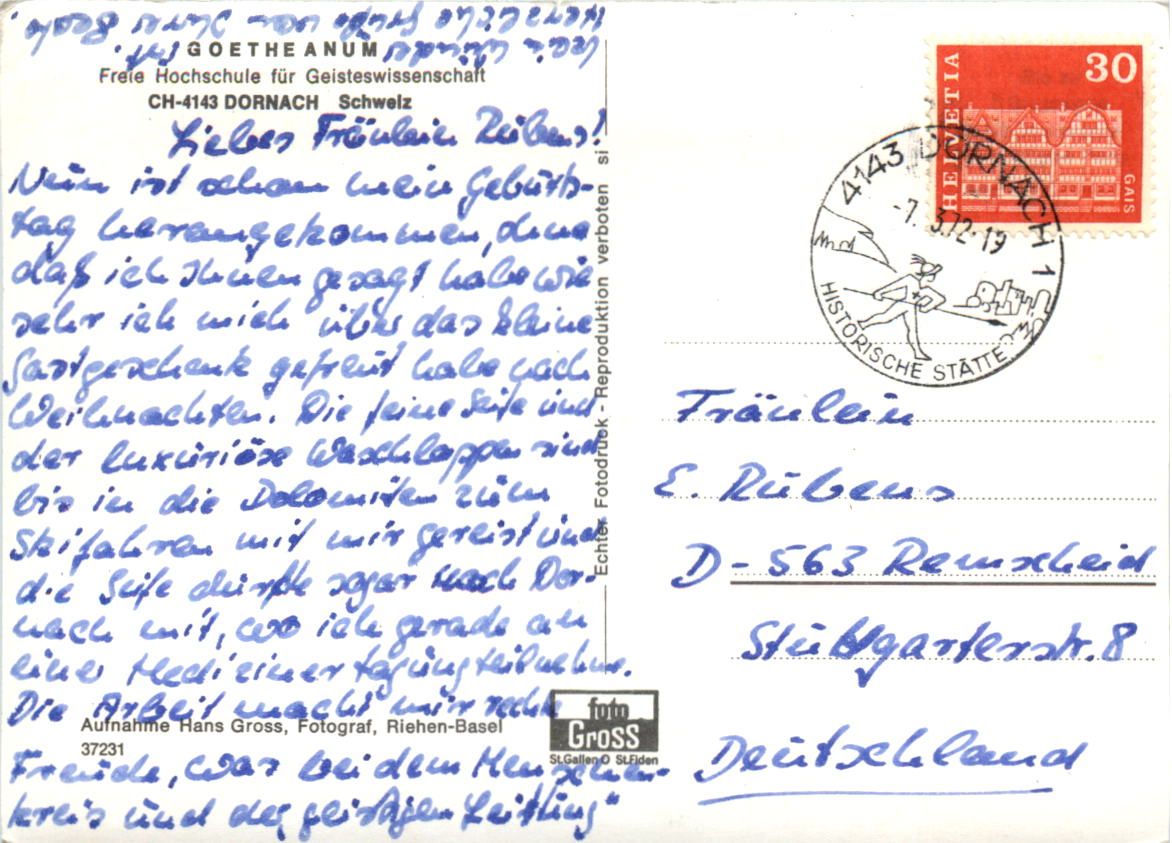 GOETHEANUM
Freie Hochschule für Geisteswissenschaft
CH-4143 DORNACH Schweiz
Liebes Fräulein Rübens!
Nun ist schon mein Geburts-
tag herangekommen, ohne
daß ich Ihnen gesagt habe wie
sehr ich mich über das kleine
Gastgeschenk gefreut habe nach
Weihnachten. Die feine Seife und
der luxuriöse Waschlappen sind
bis in die Dolomiten zum
Skifahren mit mir gereist und
die Seife dürfte sogar nach Dor-
nach mit, wo ich gerade an
einer Medizinertagung teilnehme.
Die Arbeit macht mir rechte
Aufnahme Hans Gross, Fotograf, Riehen-Basel
37231
Freude, was bei dem Menschen-
kreis und der geistigen Leitung
Herzliche Grüße von Ihrer
Echter Fotodruck - Reproduktion verboten si
foto
GROSS
St.Gallen O St.Fiden
HELVETIA
30
GAIS
4143 DORNACH 1
-7. 3.72-19
HISTORISCHE STÄTTE
Fräulein
E. Rübens
D-563 Remscheid
Stuttgarterstr. 8
Deutschland